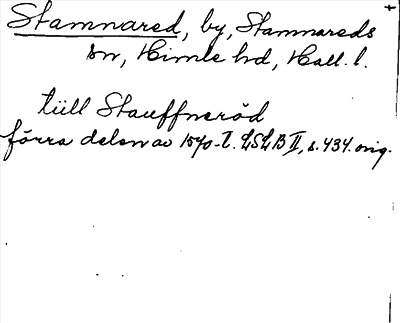 Stamnared, by, Stamnareds
sn, Himle hd, Hall. l.
till Stauffneröd
förra delen av 1540-t. LSLB II, s. 434. orig.